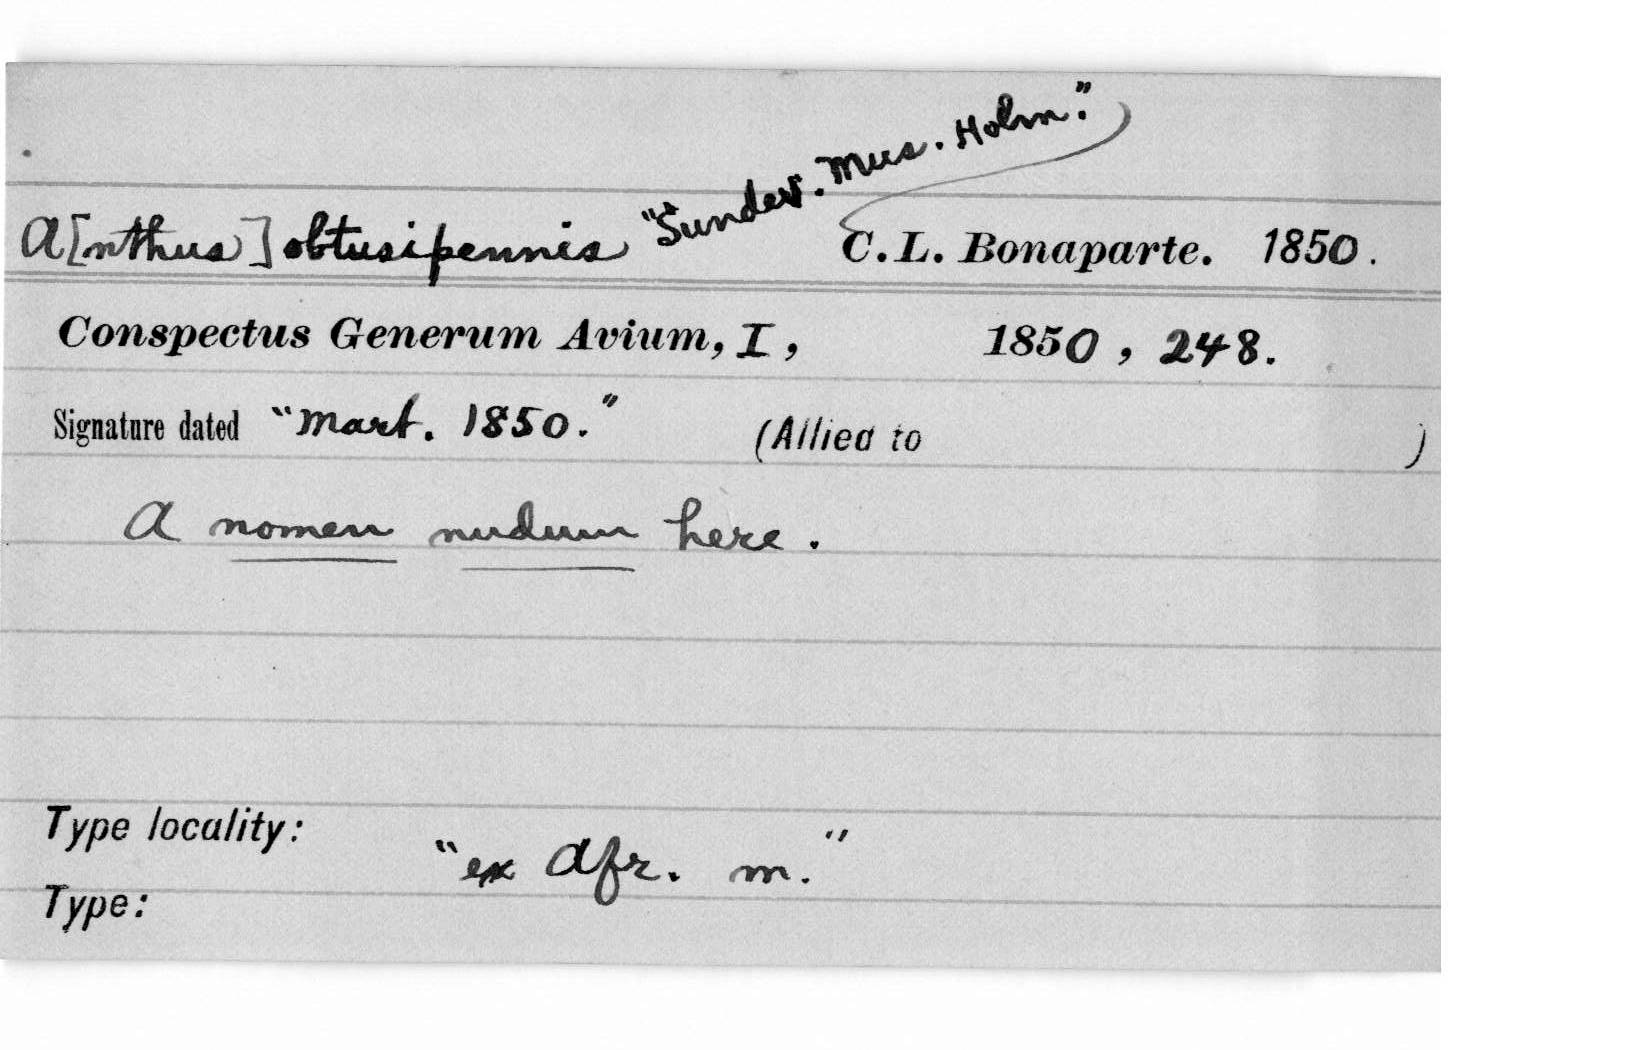 A[nthus] obtusipennis "Sundev. Mus. Holm." C.L. Bonaparte. 1850.
Conspectus Generum Avium, I, 1850, 248.
Signature dated "Mart. 1850." (Allied to )
A nomen nudum here.
Type locality: "ex Afr. m."
Type: